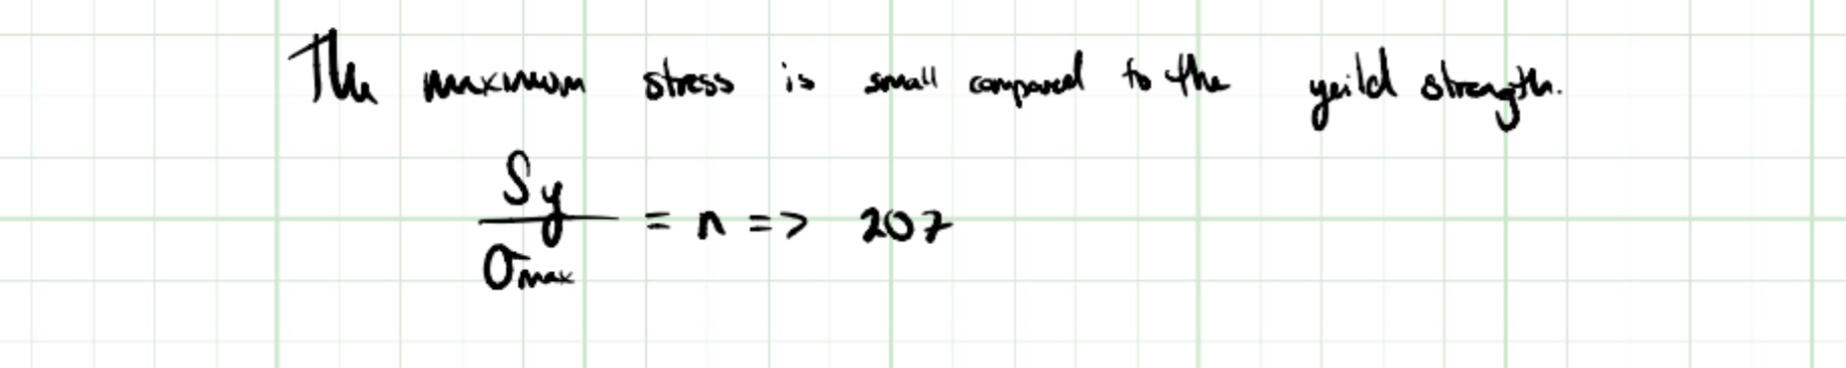 The maximum stress is small compared to the yeild strength.
Sy
= n => 207
σmax